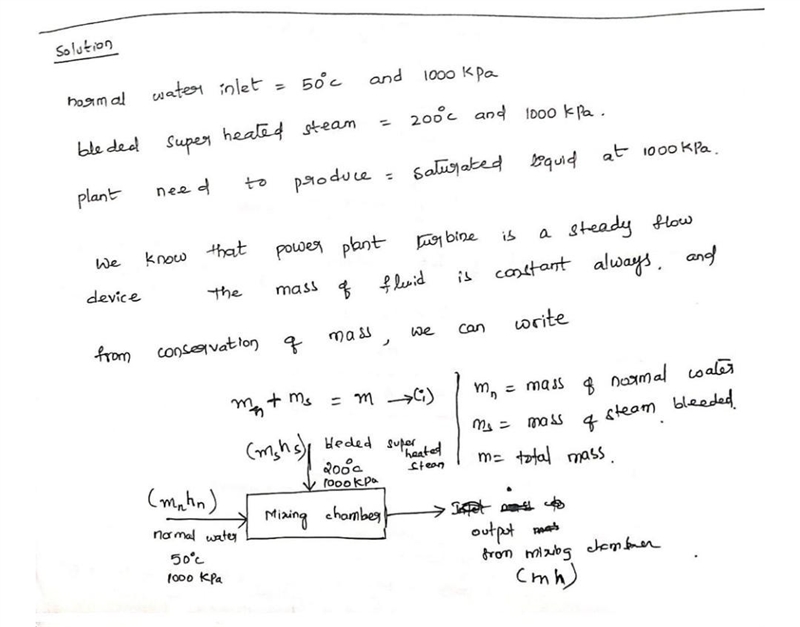 Solution
normal water inlet = 50°c and 1000 kPa
bleded super heated steam = 200°c and 1000 kPa.
plant need to produce = saturated liquid at 1000 kPa.
We know that power plant turbine is a steady flow
device the mass of fluid is constant always. and
from conservation of mass, we can write
mₙ + mₛ = m → (i)
mₙ = mass of normal water
mₛ = mass of steam bleeded.
m = total mass.
(mₛhₛ) bleded super heated steam
200°c
1000 kPa
(mₙhₙ)
normal water
50°c
1000 kPa
Mixing chamber
output
from mixing chamber
(mh)